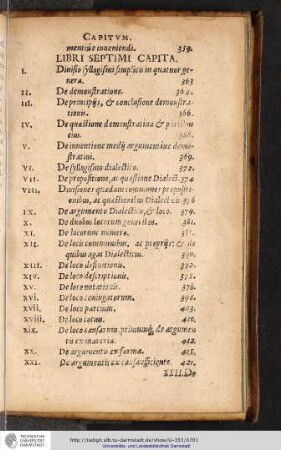 CAPITVM.
mentiúe inueniendi. 319.
LIBRI SEPTIMI CAPITA.
I. Diuisio syllogismi simplicis in quatuor ge-
nera. 363
II. De demonstratione. 364.
III. De principijs, & conclusione demonstra-
tionis. 366.
IV. De quæstione demonstratiua & partibus
eius. 368.
V. De inuentione medij argumentiue demo-
stratiui. 369.
VI. De syllogismo dialectico. 372.
VII. De propositione, ac quæstione Dialect. 374
VIII. Diuisiones quædam communes propositi-
onibus, ac quæstionibus Dialecticis 376
IX. De argumento Dialectico, & loco. 379.
X. De duobus locorum generibus. 381.
XI. De locorum numero. 381.
XII. De locis communibus, ac proprijs: & de
quibus agat Dialecticus. 390.
XIII. De loco definitionis. 392.
XIV. De loco descriptionis. 395.
XV. De loco notationis. 376.
XVI. De loco coniugatorum. 396.
XVII. De loco partium. 403.
XVIII. De loco totius. 410.
XIX. De loco causarum, primumq́; de argumen-
tis ex materia. 412.
XX. De argumentis ex forma. 415.
XXI. De argumentis ex causa efficiente. 421.
XXII. De
http://tudigit.ulb.tu-darmstadt.de/show/
Universitäts- und Landesbibliothek Darmstadt